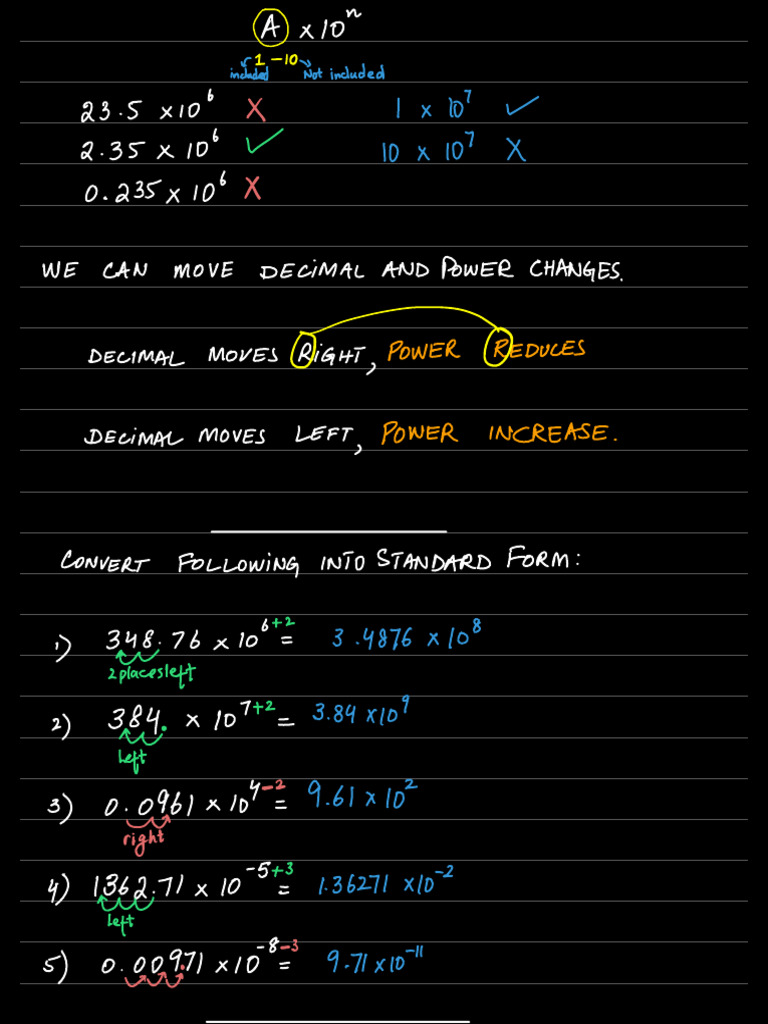 A × 10ⁿ
1 – 10
included Not included
23.5 × 10⁶ X 1 × 10⁷ ✓
2.35 × 10⁶ ✓ 10 × 10⁷ X
0.235 × 10⁶ X
WE CAN MOVE DECIMAL AND POWER CHANGES.
DECIMAL MOVES RIGHT, POWER REDUCES
DECIMAL MOVES LEFT, POWER INCREASE.
CONVERT FOLLOWING INTO STANDARD FORM:
1) 348.76 × 10⁶⁺² = 3.4876 × 10⁸
2 places left
2) 384. × 10⁷⁺² = 3.84 × 10⁹
left
3) 0.0961 × 10⁴⁻² = 9.61 × 10²
right
4) 1362.71 × 10⁻⁵⁺³ = 1.36271 × 10⁻²
left
5) 0.00971 × 10⁻⁸⁻³ = 9.71 × 10⁻¹¹